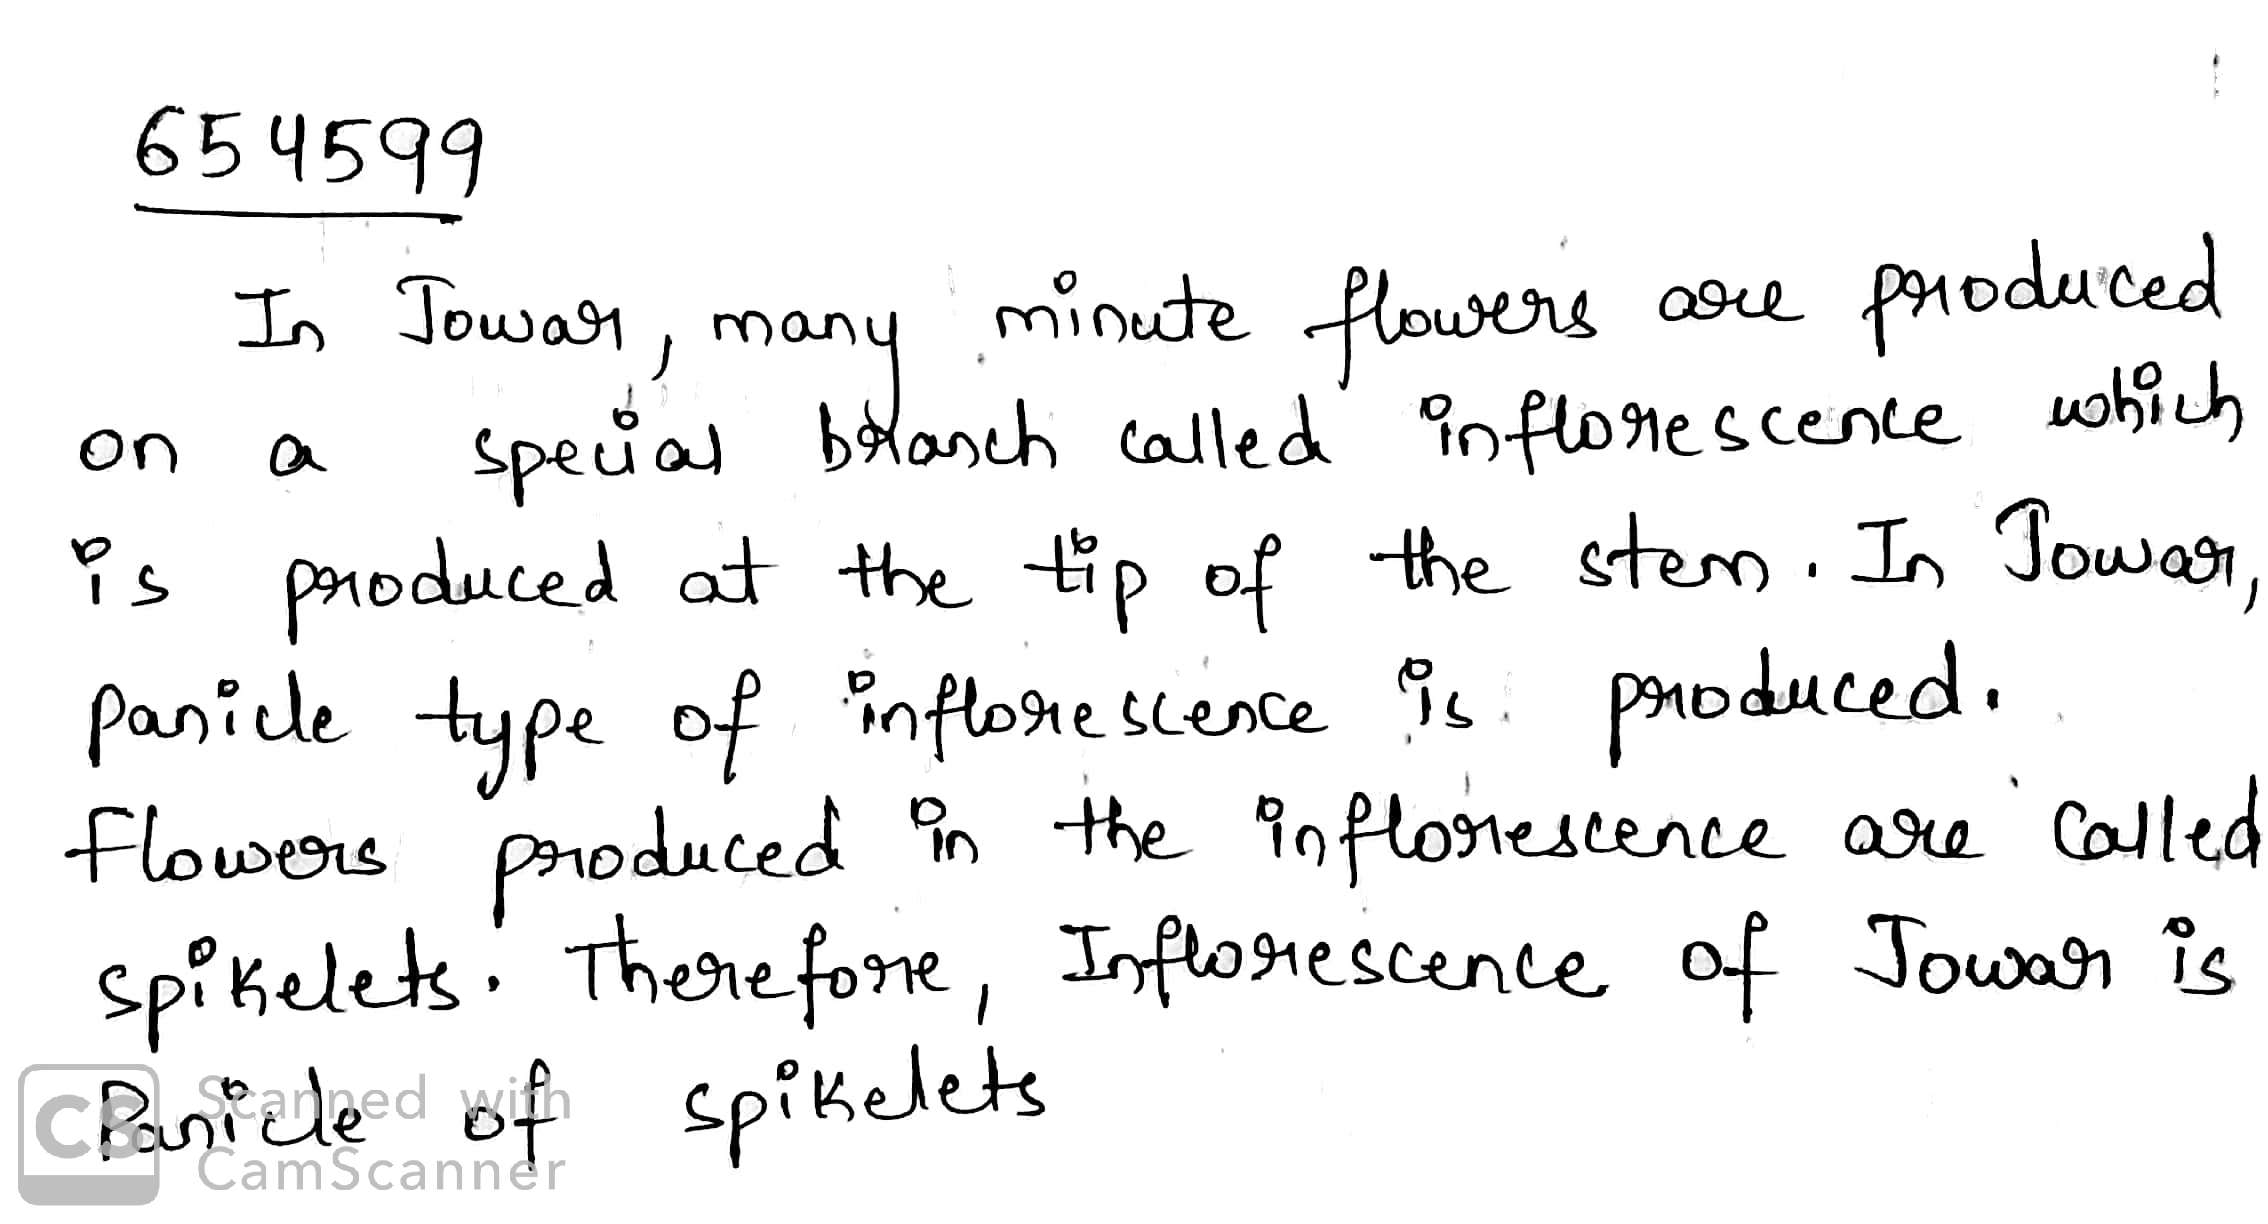 654599
In Jowar, many minute flowers are produced
on a special branch called inflorescence which
is produced at the tip of the stem. In Jowar,
panicle type of inflorescence is produced.
Flowers produced in the inflorescence are called
spikelets. Therefore, Inflorescence of Jowar is
Panicle of spikelets
CS Scanned with
CamScanner